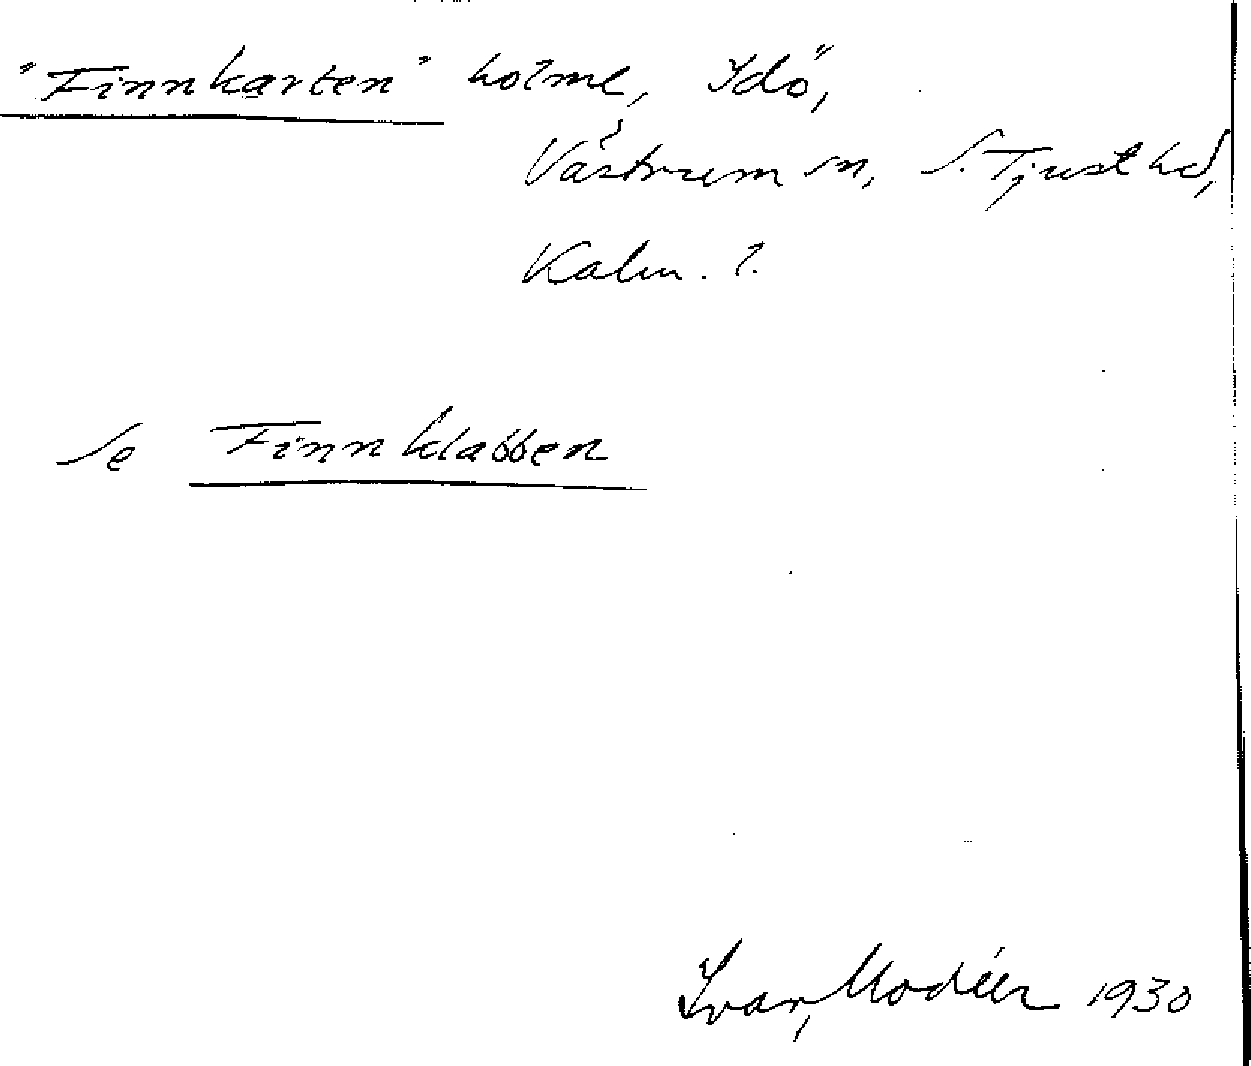 "Finnkarten" holme, Idö,
Västrum sn, S. Tjust hd,
Kalm. l.
Se Finnklabben
Ivar Modéer 1930